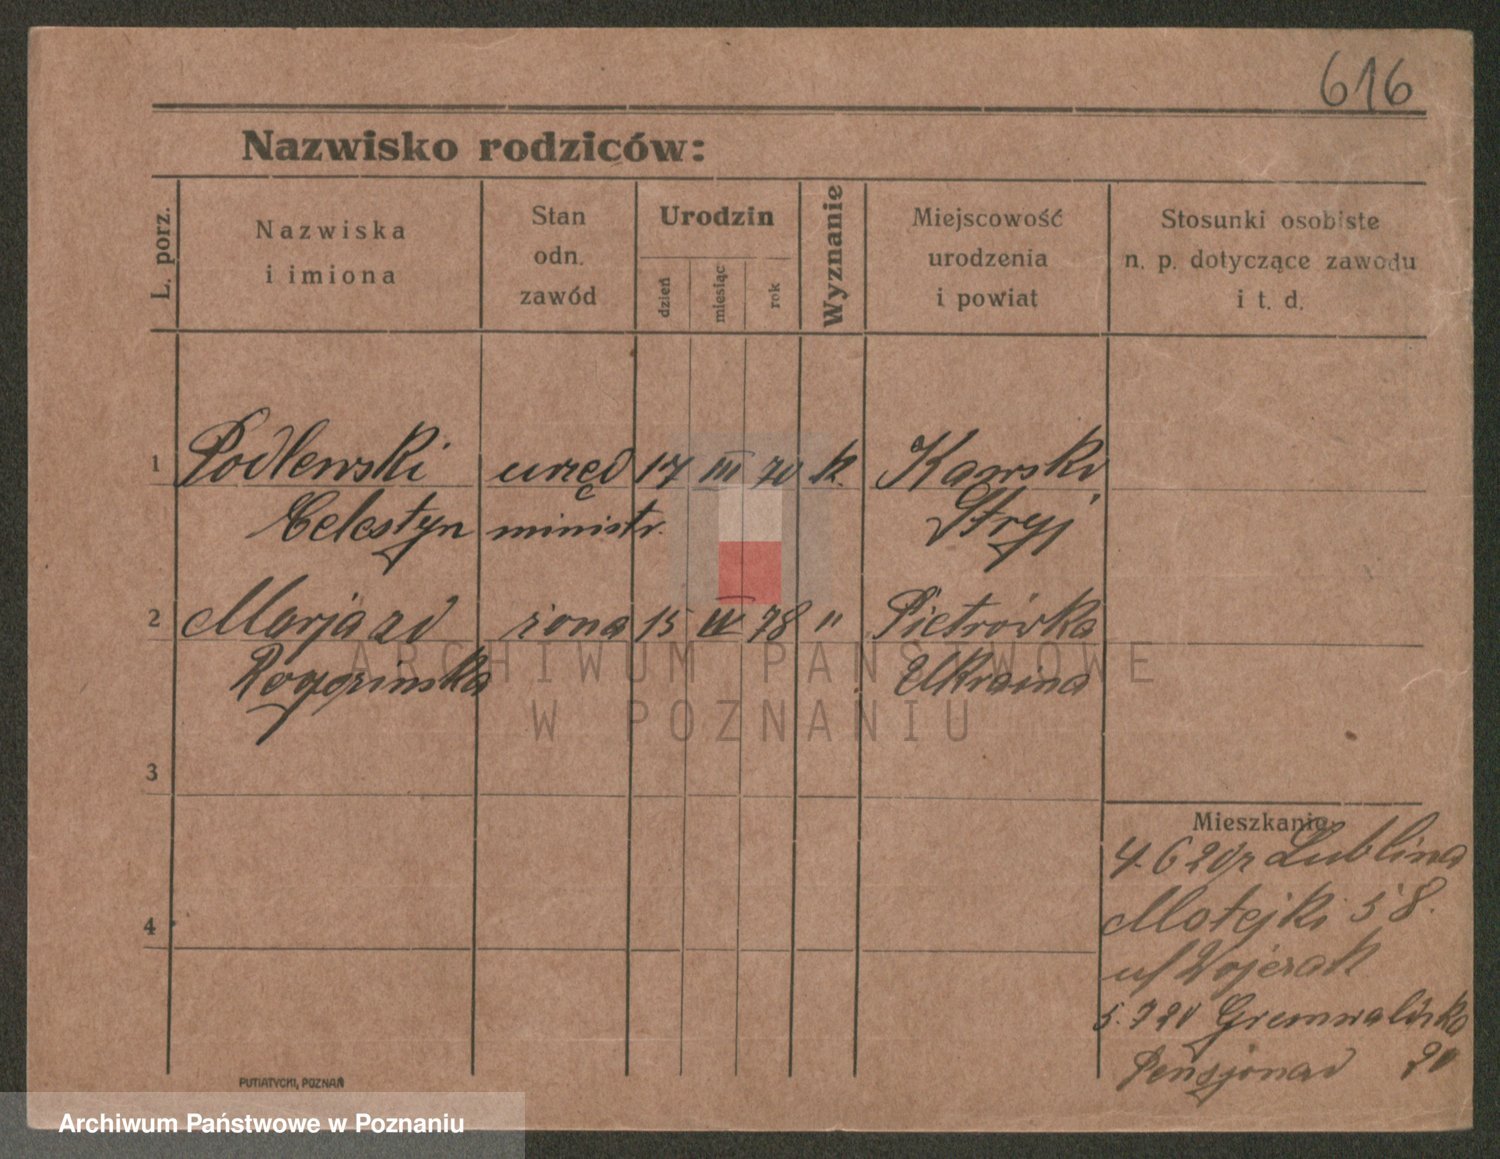 616
Nazwisko rodziców:
L. porz.
Nazwiska
i imiona
Stan
odn.
zawód
Urodzin
dzień
miesiąc
rok
Wyznanie
Miejscowość
urodzenia
i powiat
Stosunki osobiste
n. p. dotyczące zawodu
i t. d.
1 Podlewski urzęd 17 III 70 k. Kawsko
Celestyn ministr. Stryj
2 Marja zd żona 15 IV 78 " Pietrówka
Rogozinska Ukraina
3
4
Mieszkanie:
4. 6 20 z Lublina
Matejki 58.
u/ Wojczak
5. 7 20 Grunwaldzka
Pensjonad 20
PUTIATYCKI, POZNAŃ
ARCHIWUM PAŃSTWOWE
W POZNANIU
Archiwum Państwowe w Poznaniu